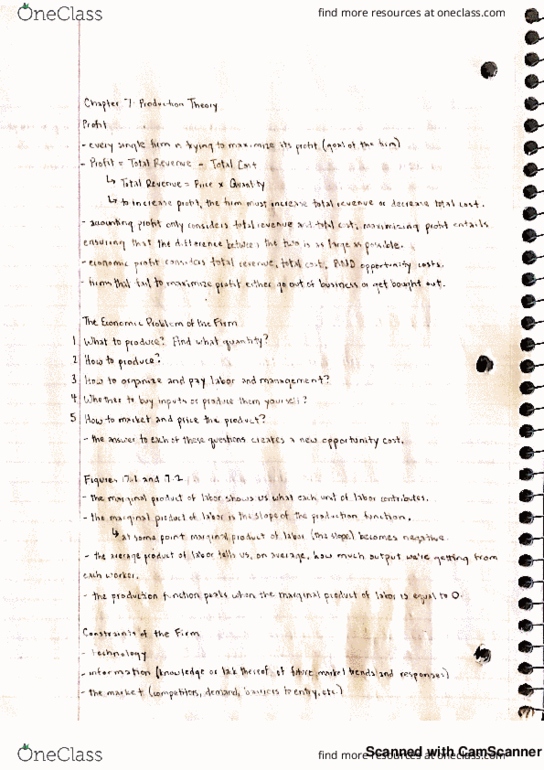 OneClass
find more resources at oneclass.com
Chapter 7: Production Theory
Profit
- every single firm is trying to maximize its profit (goal of the firm)
- Profit = Total Revenue - Total Cost
↳ Total Revenue = Price x Quantity
↳ to increase profit, the firm must increase total revenue or decrease total cost.
- accounting profit only considers total revenue and total cost, maximizing profit entails
ensuring that the difference between the two is as large as possible.
- economic profit considers total revenue, total cost, AND opportunity costs.
- firms that fail to maximize profit either go out of business or get bought out.
The Economic Problem of the Firm
1. What to produce? And what quantity?
2. How to produce?
3. How to organize and pay labor and management?
4. Whether to buy inputs or produce them yourself?
5. How to market and price the product?
- the answer to each of these questions creates a new opportunity cost.
Figures 7.1 and 7.2
- the marginal product of labor shows us what each unit of labor contributes.
- the marginal product of labor is the slope of the production function.
↳ at some point marginal product of labor (the slope) becomes negative.
- the average product of labor tells us, on average, how much output we're getting from
each worker.
- the production function peaks when the marginal product of labor is equal to 0.
Constraints of the Firm
- technology
- information (knowledge or lack thereof, of future market trends and responses)
- the market (competitors, demand, barriers to entry, etc.)
OneClass
find more resources at oneclass.com
Scanned with CamScanner